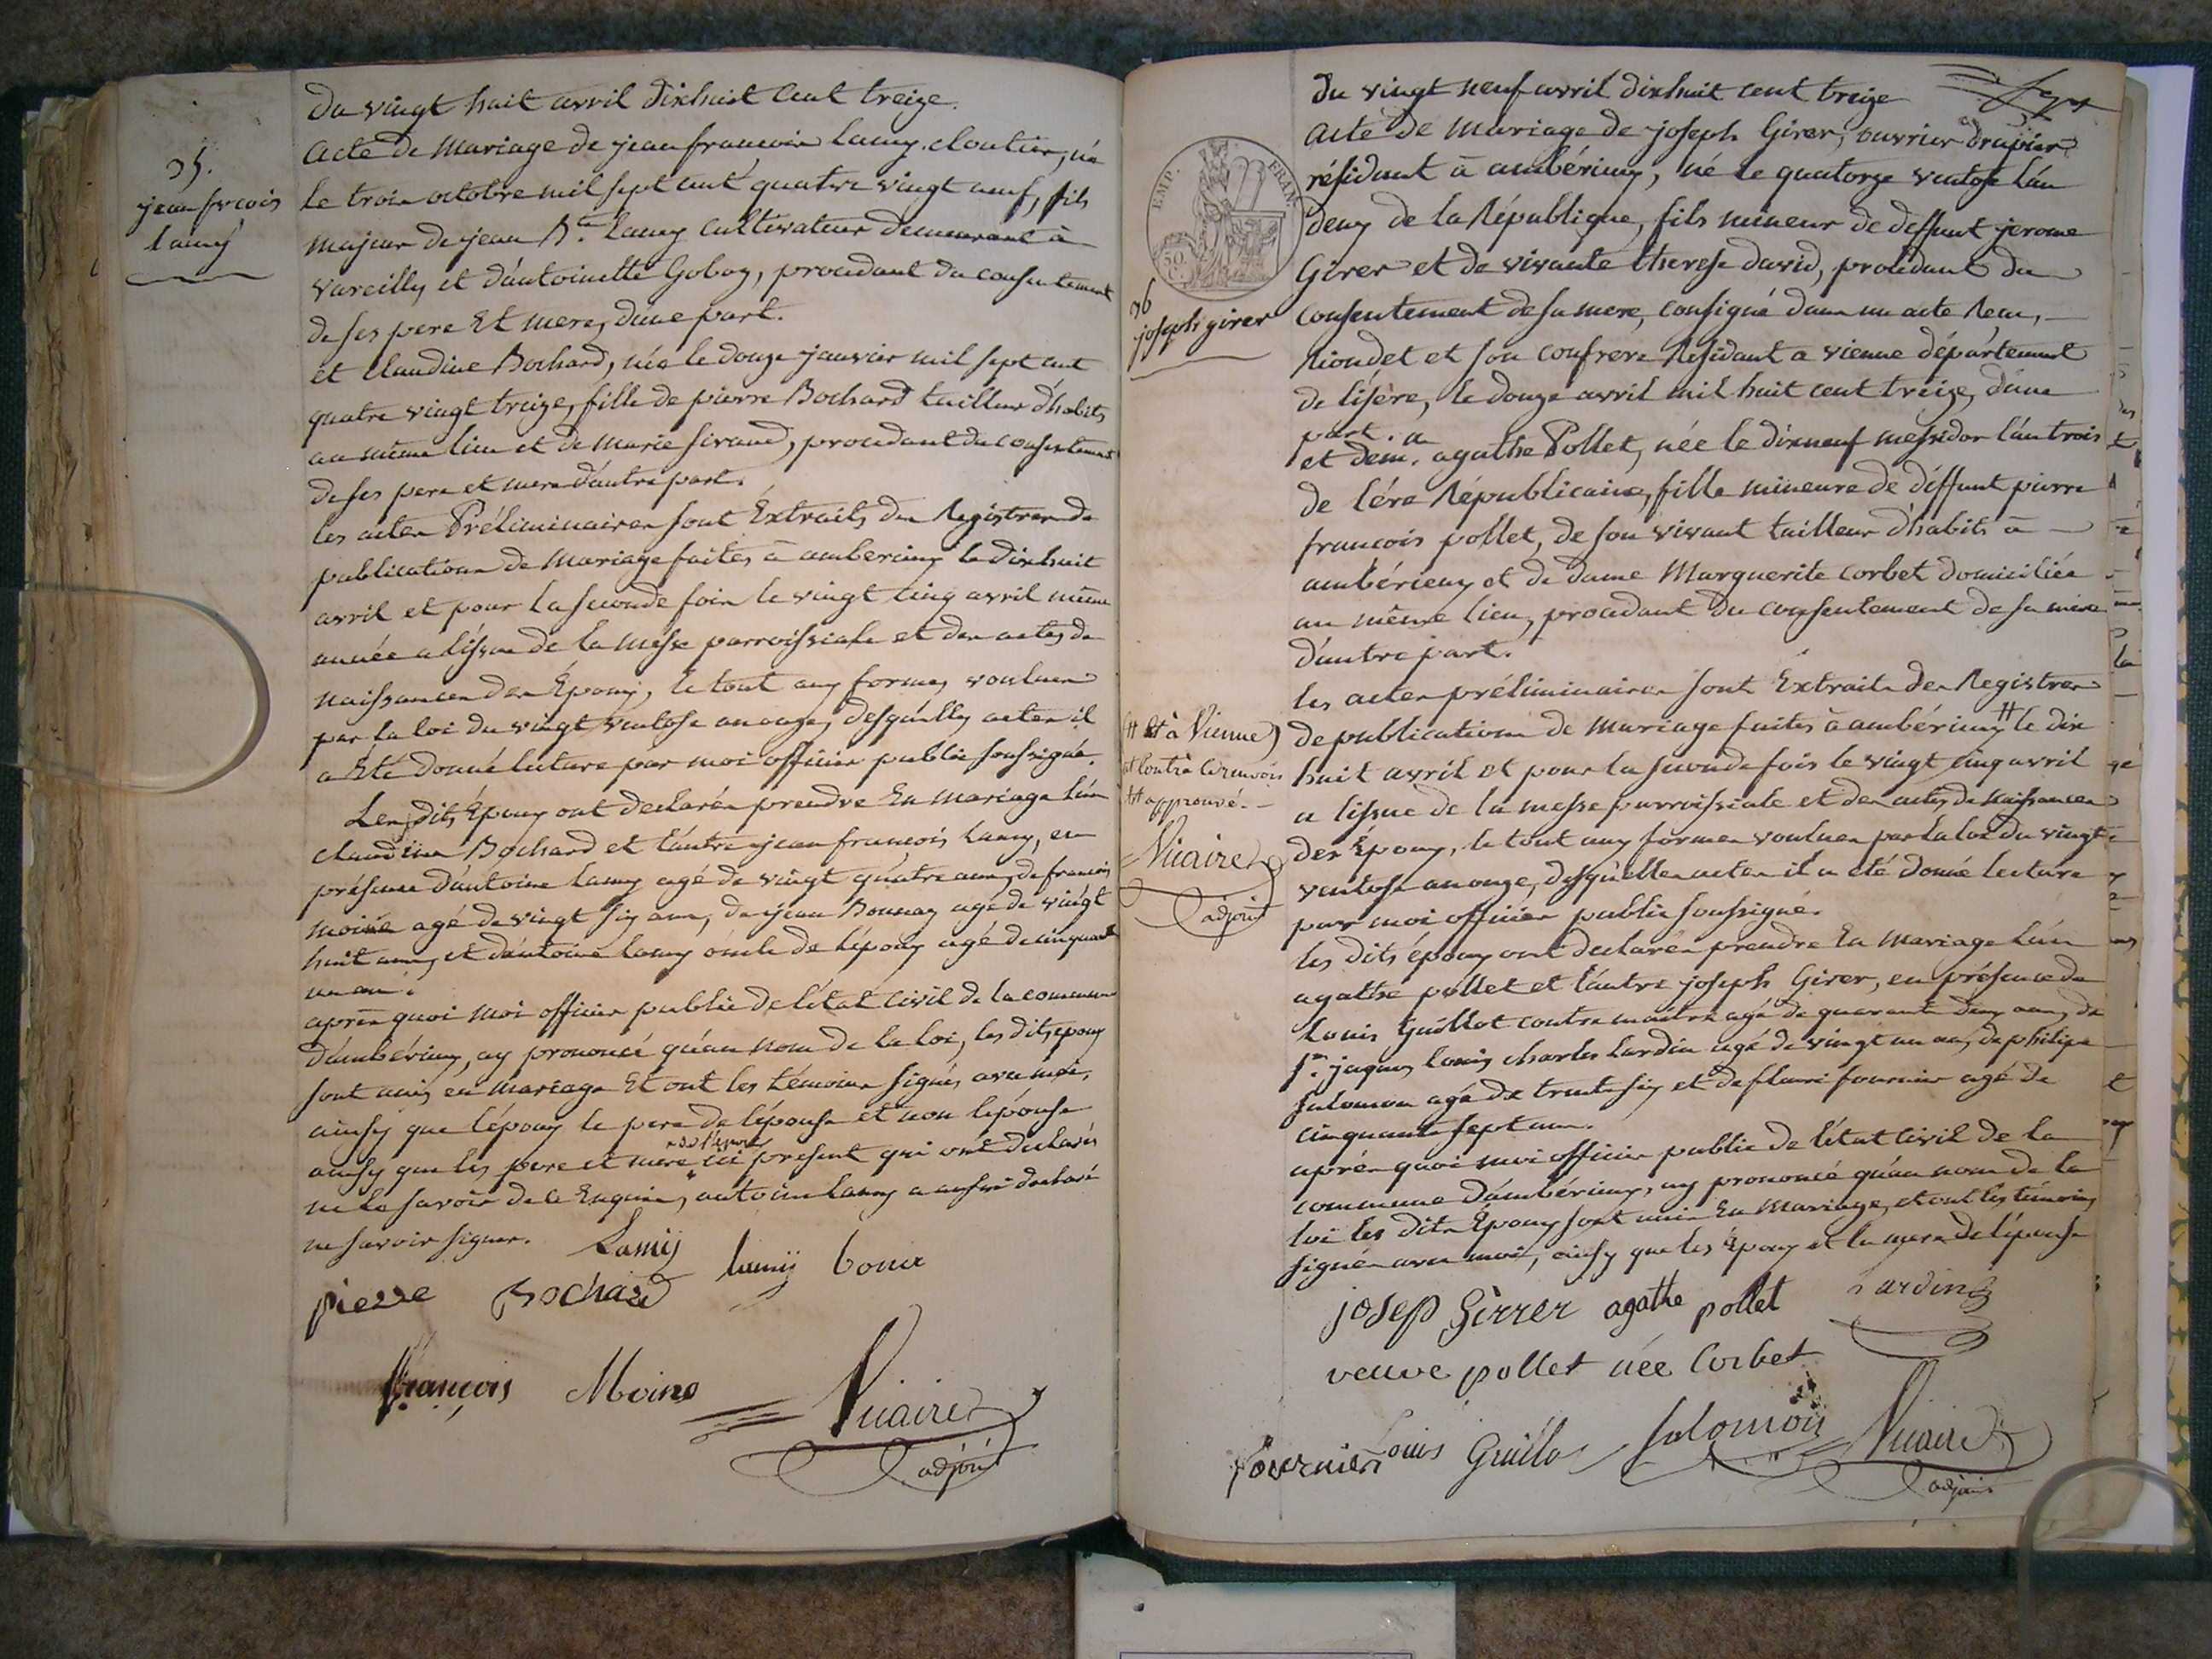 35.
jean frcois
lamy
Du vingt huit avril dixhuit cent treize.
Acte de Mariage de jean francois Lamy cloutier, né
le trois octobre mil sept cent quatre vingt neuf, fils
majeur de jean B.te Lamy Cultivateur demeurant à
vareilly et d'antoinette Goboz, procédant du consentement
de ses pere Et mere, d'une part.
Et Claudine Bochard, née le douze janvier mil sept cent
quatre vingt treize, fille de pierre Bochard tailleur d'habits
au même lieu et de Marie Sivaud, procedant du consentement
de ses pere et mere d'autre part.
les actes Préliminaires sont Extraits des Registres de
publications de Mariage faites à amberieux le dixhuit
avril et pour la seconde fois le vingt cinq avril même
année a l'issue de la messe parroissiale et des actes de
naissances des Epoux, le tout aux formes voulues
par la loi du vingt ventose an onze, desquelles actes il
a Eté donné lecture par moi officier public soussigné.
Les dits Epoux ont declarés prendre En Mariage l'un
Claudine Bochard et l'autre jean francois Lamy, en
présence d'antoine Lamy agé de vingt quatre ans, de francois
moine agé de vingt six ans, de jean Bonnaz agé de vingt
huit ans, et d'antoine lamy oncle de l'époux agé de cinquante
un an.
après quoi moi officier public de l'état civil de la commune
d'ambérieux, ay prononcé qu'au nom de la loi, les dits epoux
sont unis en mariage Et ont les témoins signés avec moi,
ainsy que l'époux le pere de l'épouse et non l'épouse
ainsy que les pere et mere de l'époux ici présent qui ont declarés
ne le savoir de ce Enquis, antoine lamy a aussi declaré
ne savoir signer.
Lamij
lamij
bona
pierre Bochard
François Moine
Vuaire
adjoint
Du vingt neuf avril dixhuit cent treize
Acte de Mariage de joseph Girer, ouvrier drapier
résidant à ambérieux, né le quatorze ventose l'an
deux de la République, fils mineur de deffunt jerome
Girer et de vivante therese david, procédant du
consentement de sa mere, consigné dans un acte Recu,
Rioudet et son confrere Résidant a vienne département
de l'isère, le douze avril mil huit cent treize, d'une
part.
et dem. agathe Pollet, née le dixneuf messidor l'an trois
de l'ére Républicaine, fille mineure de déffunt pierre
francois pollet, de son vivant tailleur d'habits à
ambérieux et de dame Marguerite Corbet domiciliée
au même lieu, procédant du consentement de sa mère
d'autre part.
les actes préliminaires sont Extraits des Registres
de publications de mariage faites à ambérieux # le dix
huit avril et pour la seconde fois le vingt cinq avril
a l'issue de la messe parroissiale et des actes de Naissances
des Epoux, le tout aux formes voulues par la loi du vingt
ventose an onze, desquelles actes il a été donné lecture
par moi officier public soussigné.
les dits époux ont declarés prendre En Mariage l'un
agathe pollet et l'autre joseph Girer, en présence de
Louis Guillot contre maitre agé de quarante deux ans, de
Sr. jaques louis charles lardin agé de vingt un an, de philipe
Salomon agé de trente six et de flauri fournier agé de
cinquante sept ans.
après quoi moi officier public de l'état civil de la
commune d'ambérieux, ay prononcé qu'au nom de la
loi les dits Epoux sont unis En Mariage, et ont les témoins
signés avec moi, ainsy que les Epoux et la mere de l'épouse
EMP. FRAN.
50 C.
36
joseph girer
# Et à Vienne
approuvé.
Vuaire
adjoint
josep Girrer agathe pollet
Lardin
veuve pollet née Corbet
fournier
Louis Guillo
Salomon
Vuaire
adjoint